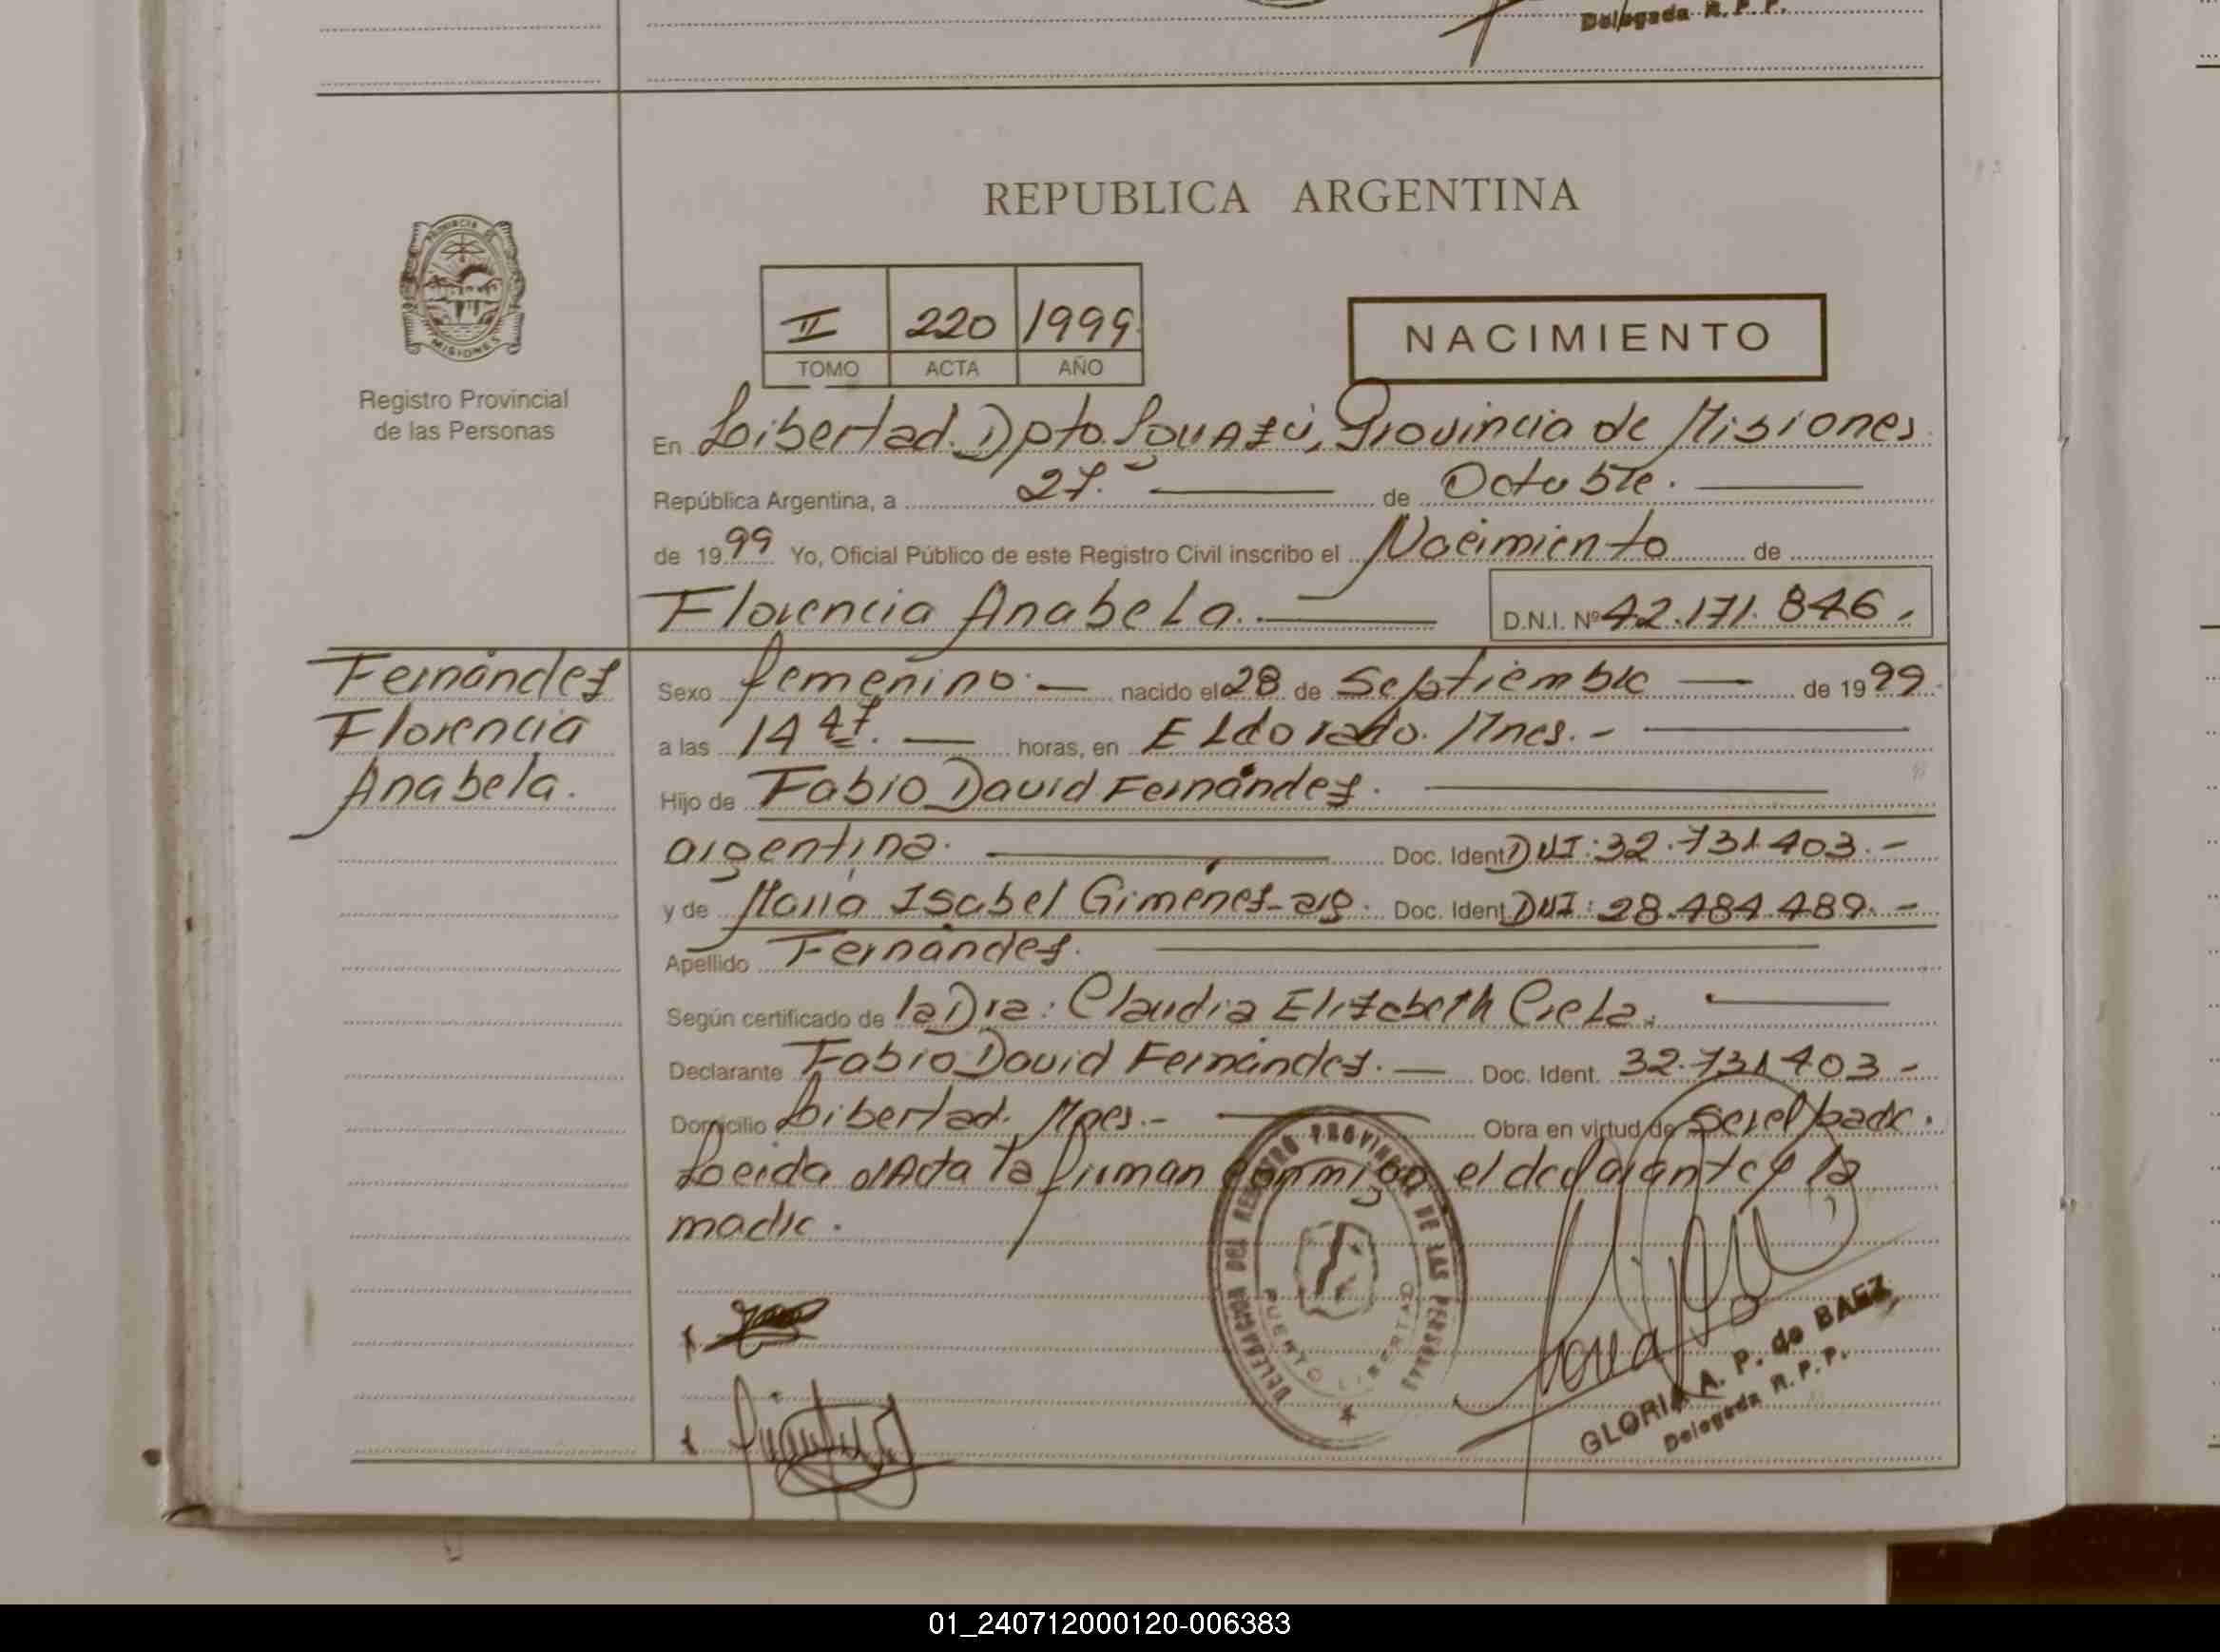 Delegada R. P. P.
REPUBLICA ARGENTINA
PROVINCIA DE
MISIONES
Registro Provincial
de las Personas
II 220 1999
TOMO ACTA AÑO
NACIMIENTO
En Libertad. Dpto. Iguazú, Provincia de Misiones
República Argentina, a 27. de Octubre.
de 1999 Yo, Oficial Público de este Registro Civil inscribo el Nacimiento de
Florencia Anabela. D.N.I. Nº 42.171.846.
Fernández
Florencia
Anabela.
Sexo femenino.- nacido el 28 de Septiembre de 1999
a las 14 47. horas, en Eldorado. Mnes.-
Hijo de Fabio David Fernández.
argentina. Doc. Ident DNI: 32.731.403.-
y de María Isabel Giménez-arg. Doc. Ident. DNI: 28.484.489.-
Apellido Fernández.
Según certificado de la Dra: Claudia Elizabeth
Declarante Fabio David Fernández.- Doc. Ident. 32.731.403-
Domicilio Libertad. Mnes.- Obra en virtud de Ser el padre.
Leida el Acta la firman conmigo, el declarante y la
madre.
DELEGACION DEL REGISTRO PROVINCIAL DE LAS PERSONAS
PUERTO LIBERTAD
GLORIA A. P. de BAEZ
Delegada R. P. P.
01_240712000120-006383